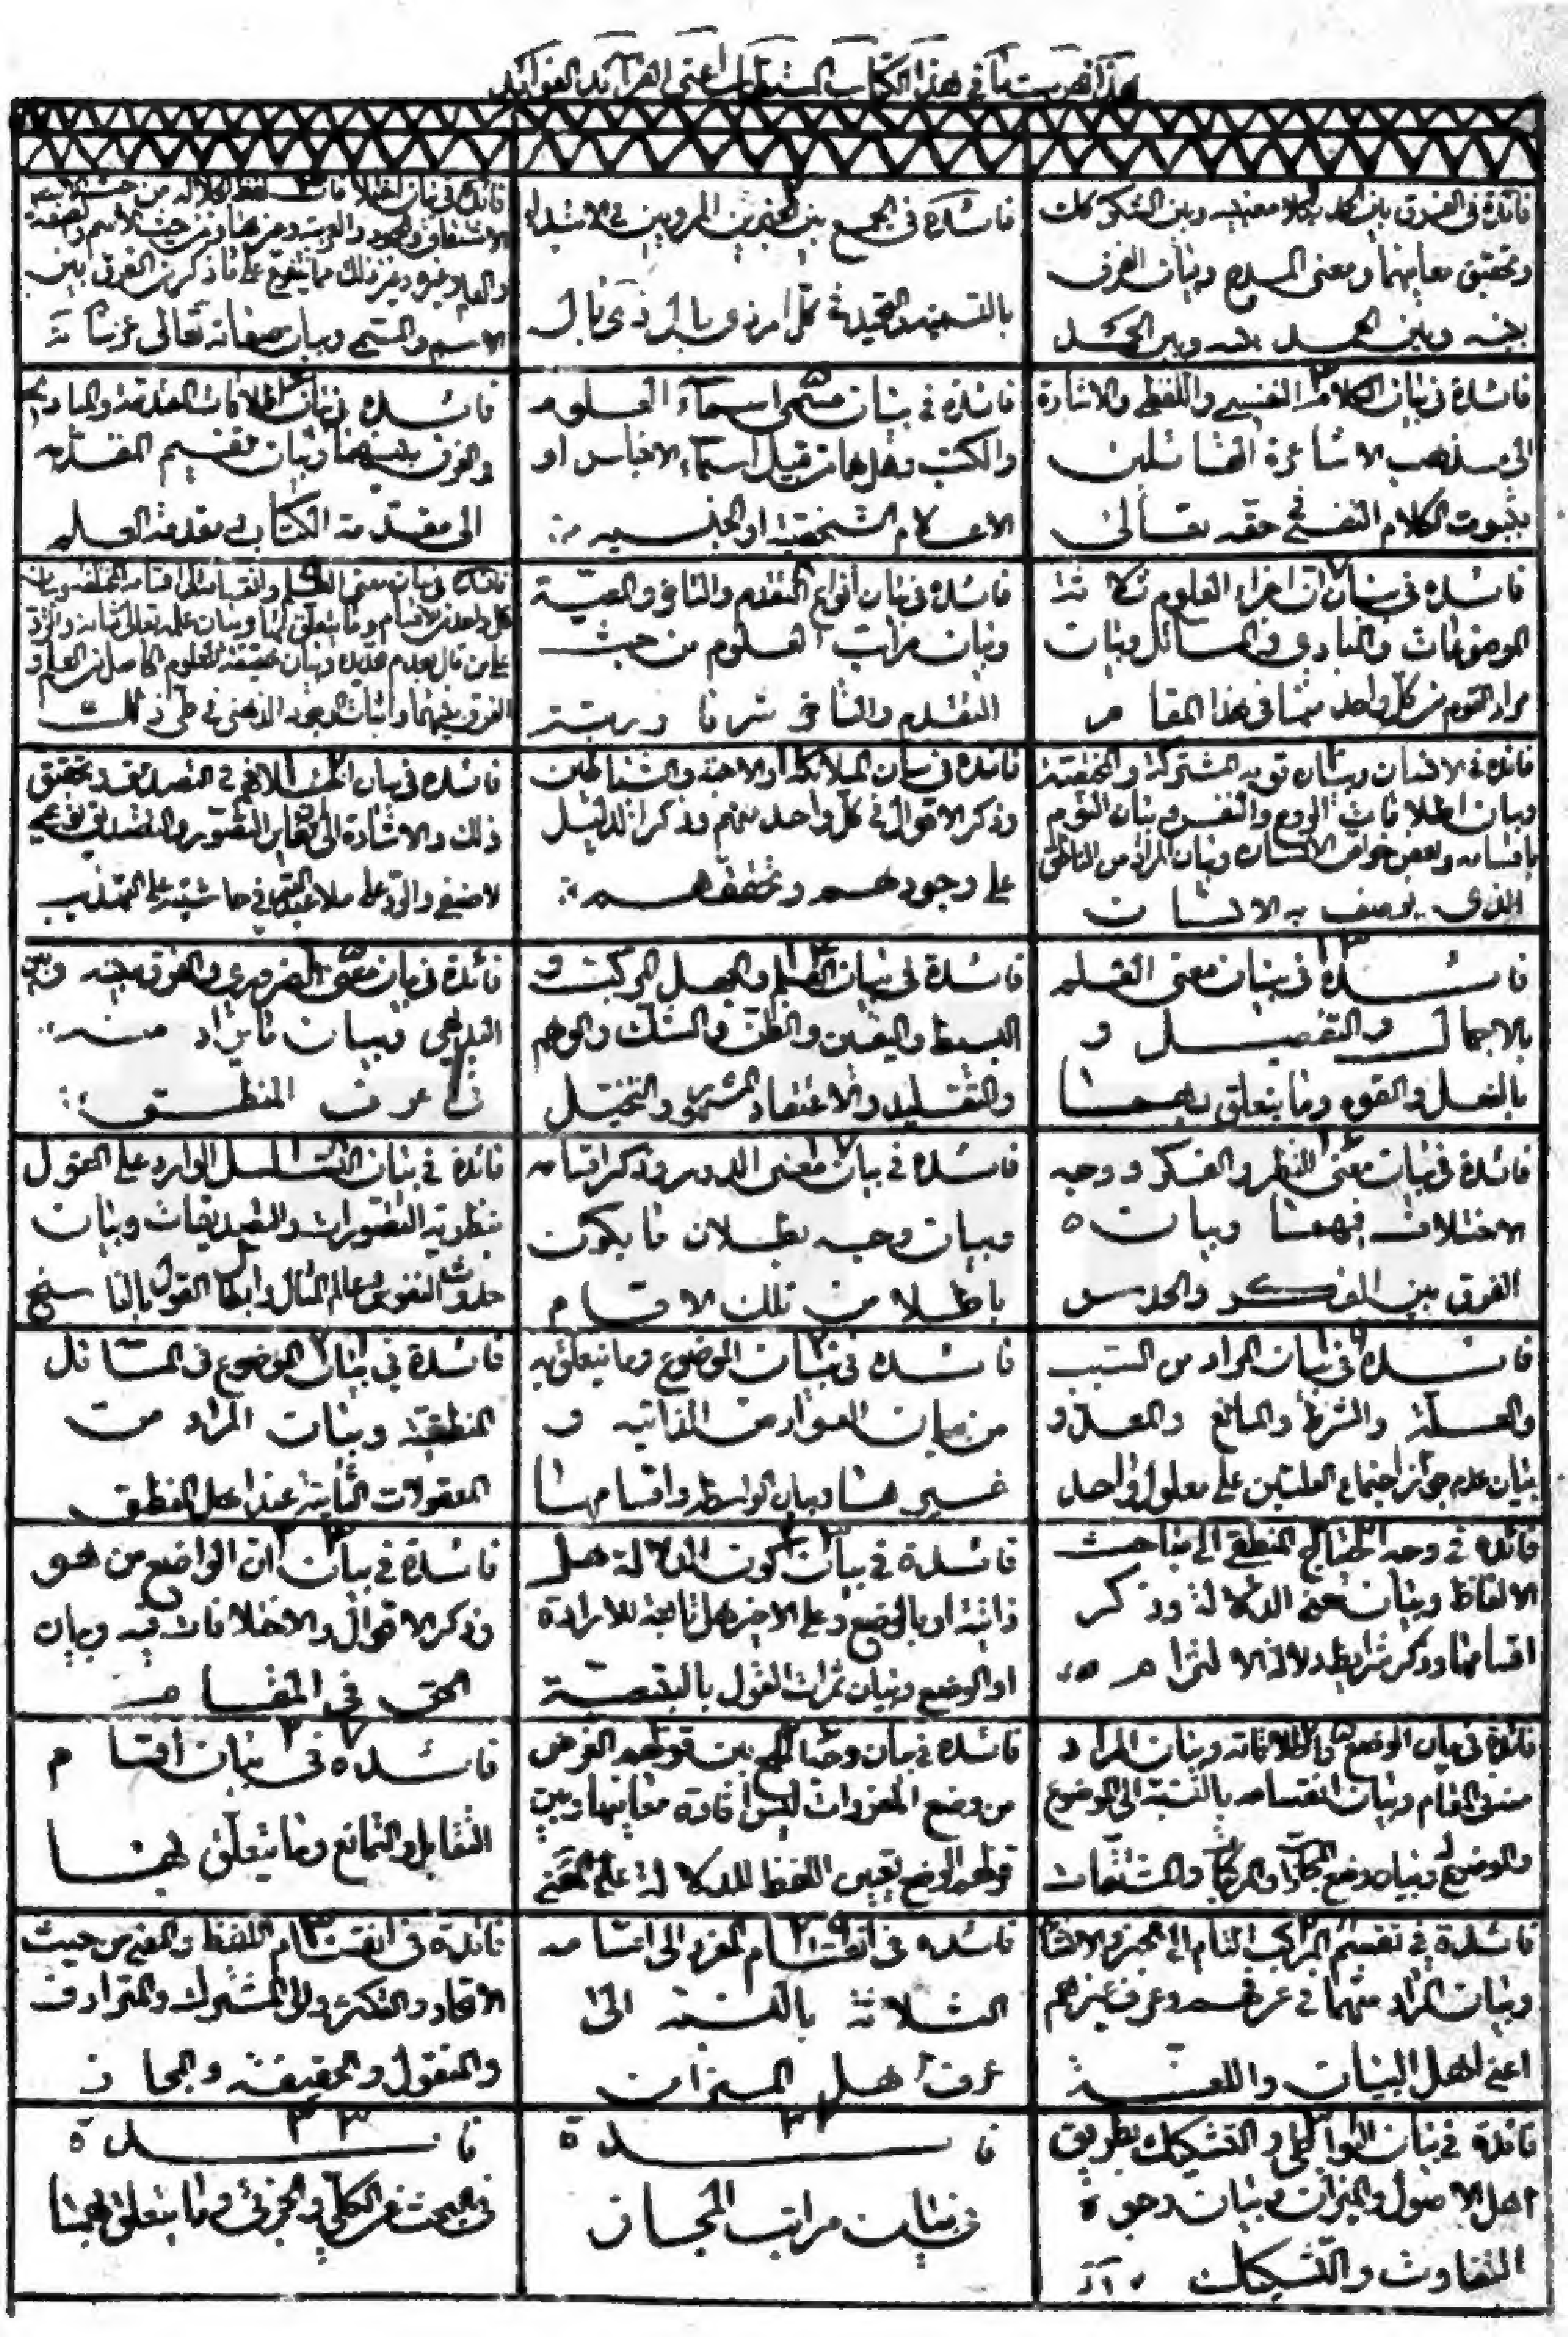 هذا فهرست ما في هذا الكتاب المستطاب اعني الفرائد الفوائد
فائدة في الفرق بين الحمد وبين الشكر
وتحقيق معانيهما ومعنى المدح وبيان الفرق
بينه وبين الحمد
فائدة في الجمع بين الخبرين المرويين في الابتداء
بالتسمية والتحميد في كل امر ذي بال
فائدة في بيان لفظ الجلالة من حيث
الاسم والمسمى وبيان صفاته تعالى
فائدة في بيان الكلام النفسي واللفظي والاشارة
الى مذهب الاشاعرة القائلين
بثبوت الكلام النفسي في حقه تعالى
فائدة في بيان مسمى اسماء العلوم
والكتب وهل هما من قبيل اسماء الاجناس او
الاعلام الشخصية او الجنسية
فائدة في بيان اطلاقات المقدمة والمبادي
والفرق بينهما وبيان تقسيم المقدمة
الى مقدمة الكتاب ومقدمة العلم
فائدة في بيان ان اجزاء العلوم ثلاثة
الموضوعات والمبادي والمسائل وبيان
مراد القوم من كل واحد منها في هذا المقام
فائدة في بيان انواع التقدم والتاخر والمعية
وبيان مراتب العلوم من حيث
التقدم والتاخر شرفا ورتبة
فائدة في بيان معنى العلم وانقسامه الى اقسامه المختلفة وبيان
كل واحد من الاقسام وما يتعلق بها وبيان علمه تعالى بذاته والرد
على من قال بعدم تحديده وبيان حقيقة المعلوم الحاصل من العلم و
الفرق بينهما واثبات الوجود الذهني في طي ذلك
فائدة في الانسان وبيان قويه المشتركة والمختصة
وبيان اطلاقات الروح والنفس وبيان النوم
باقسامه وبعض خواص الانسان وبيان المراد من الناطق
الذي يوصف به الانسان
فائدة في بيان الملائكة والاجنة والشياطين
وذكر الاقوال في كل واحد منهم وذكر الدليل
على وجودهم وتحققهم
فائدة في بيان الخلاف في التصديق وتحقيق
ذلك والاشارة الى تغاير التصور والتصديق
والرد على ملا عبد الله في حاشيته على التهذيب
فائدة في بيان معنى العلم
بالاجمال والتفصيل و
بالفعل والقوه وما يتعلق بهما
فائدة في بيان العلم والجهل المركب و
البسيط واليقين والظن والشك والوهم
والتقليد والاعتقاد المشهور والتخيل
فائدة في بيان معنى الضروري والفرق بينه وبين
البديهي وبيان ما يراد منه
في عرف المنطق
فائدة في بيان معنى النظر والفكر ووجه
الاختلاف فيهما وبيان
الفرق بين الفكر والحدس
فائدة في بيان معنى الدور وذكر اقسامه
وبيان وجه بطلان ما يكون
باطلا من تلك الاقسام
فائدة في بيان التسلسل الوارد على القول
بنظرية التصورات والتصديقات وبيان
حدوث النفوس وعالم المثال وابطال القول بالتناسخ
فائدة في بيان المراد من السبب
والعلة والشرط والمانع والمعد و
بيان عدم جواز اجتماع العلتين على معلول واحد
فائدة في بيان الموضوع وما يتعلق به
من بيان العوارض الذاتيه و
غيرها وبيان الواسطه واقسامها
فائدة في بيان الموضوع في المسائل
المنطقية وبيان المراد من
المعقولات الثانية عند اهل المنطق
فائدة في وجه احتياج المنطقي الى مباحث
الالفاظ وبيان معنى الدلالة وذكر
اقسامها وذكر شرايط دلالة الالتزام
فائدة في بيان كون الدلالة هل
ذاتية او بالوضع وعلى الاخير هل تابعة للارادة
او الوضع وبيان ثمرات القول بالتبعية
فائدة في بيان ان الواضع من هو
وذكر الاقوال والاختلافات فيه وبيان
الحق في المقام
فائدة في بيان الوضع واطلاقاته وبيان المراد
منه في المقام وبيان انقسامه بالنسبة الى الموضوع
والموضوع له وبيان وضع المجازات والمركبات والمشتقات
فائدة في بيان وجه الجمع بين قولهم الغرض
من وضع المفردات ليس افادة معانيها وبين
قولهم الوضع تعيين اللفظ للدلالة على المعنى
فائدة في بيان اقسام
التقابل والتمانع وما يتعلق بهما
فائدة في تقسيم المركب التام الى الخبر والانشاء
وبيان المراد منهما في عرفهم وعرف غيرهم
اعني اهل البيان واللغة
فائدة في انقسام المفرد الى اقسامه
الثلاثة بالنسبة الى
عرف اهل الميزان
فائدة في انقسام اللفظ والمعنى من حيث
الاتحاد والتكثر والى المشترك والمترادف
والمنقول والحقيقة والمجاز
فائدة في بيان التواطي والتشكيك بطريق
اهل الاصول والميزان وبيان وجوه
التفاوت والتشكيك
فائدة
في بيان مراتب المجاز
فائدة
في البحث عن الكلي والجزئي وما يتعلق بهما